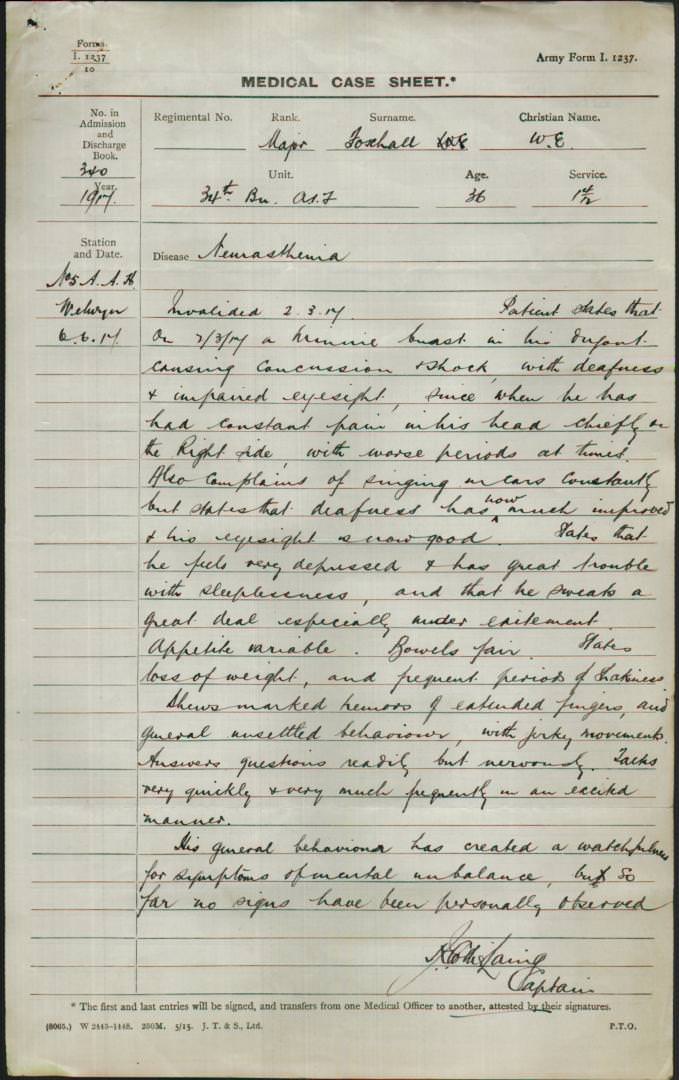 Forms
I. 1237
10
Army Form I. 1237.
MEDICAL CASE SHEET.*
No. in
Admission
and
Discharge
Book.
340
Year.
1917.
Regimental No.
Rank.
Surname.
Christian Name.
Major Foxhall W.E
Unit.
Age.
Service.
34th Bn. A.I.F 36
Station
and Date.
Disease Neurasthenia
No 5 A. A. H.
Welwyn
6.6.17
Invalided 2.3.17. Patient states that
On 2/3/17 a Minnie burst in his dugout
causing concussion & shock, with deafness
& impaired eyesight, since when he has
had constant pain in his head chiefly on
the Right side, with worse periods at times.
Also complains of singing in ears constantly
but states that deafness has now much improved
& his eyesight is now good. States that
he feels very depressed & has great trouble
with sleeplessness, and that he sweats a
great deal especially under exitement.
Appetite variable. Bowels fair. States
loss of weight, and frequent periods of shakiness.
Shews marked tremors of extended fingers, and
general unsettled behaviour, with jerky movements.
Answers questions readily but nervously. Talks
very quickly & very much frequently in an excited
manner.
His general behaviour has created a watchfulness
for symptoms of mental unbalance, but so
far no signs have been personally observed
Laing
Captain
* The first and last entries will be signed, and transfers from one Medical Officer to another, attested by their signatures.
(8065.) W 2443-1448. 250M. 5/15. J. T. & S., Ltd.
P.T.O.